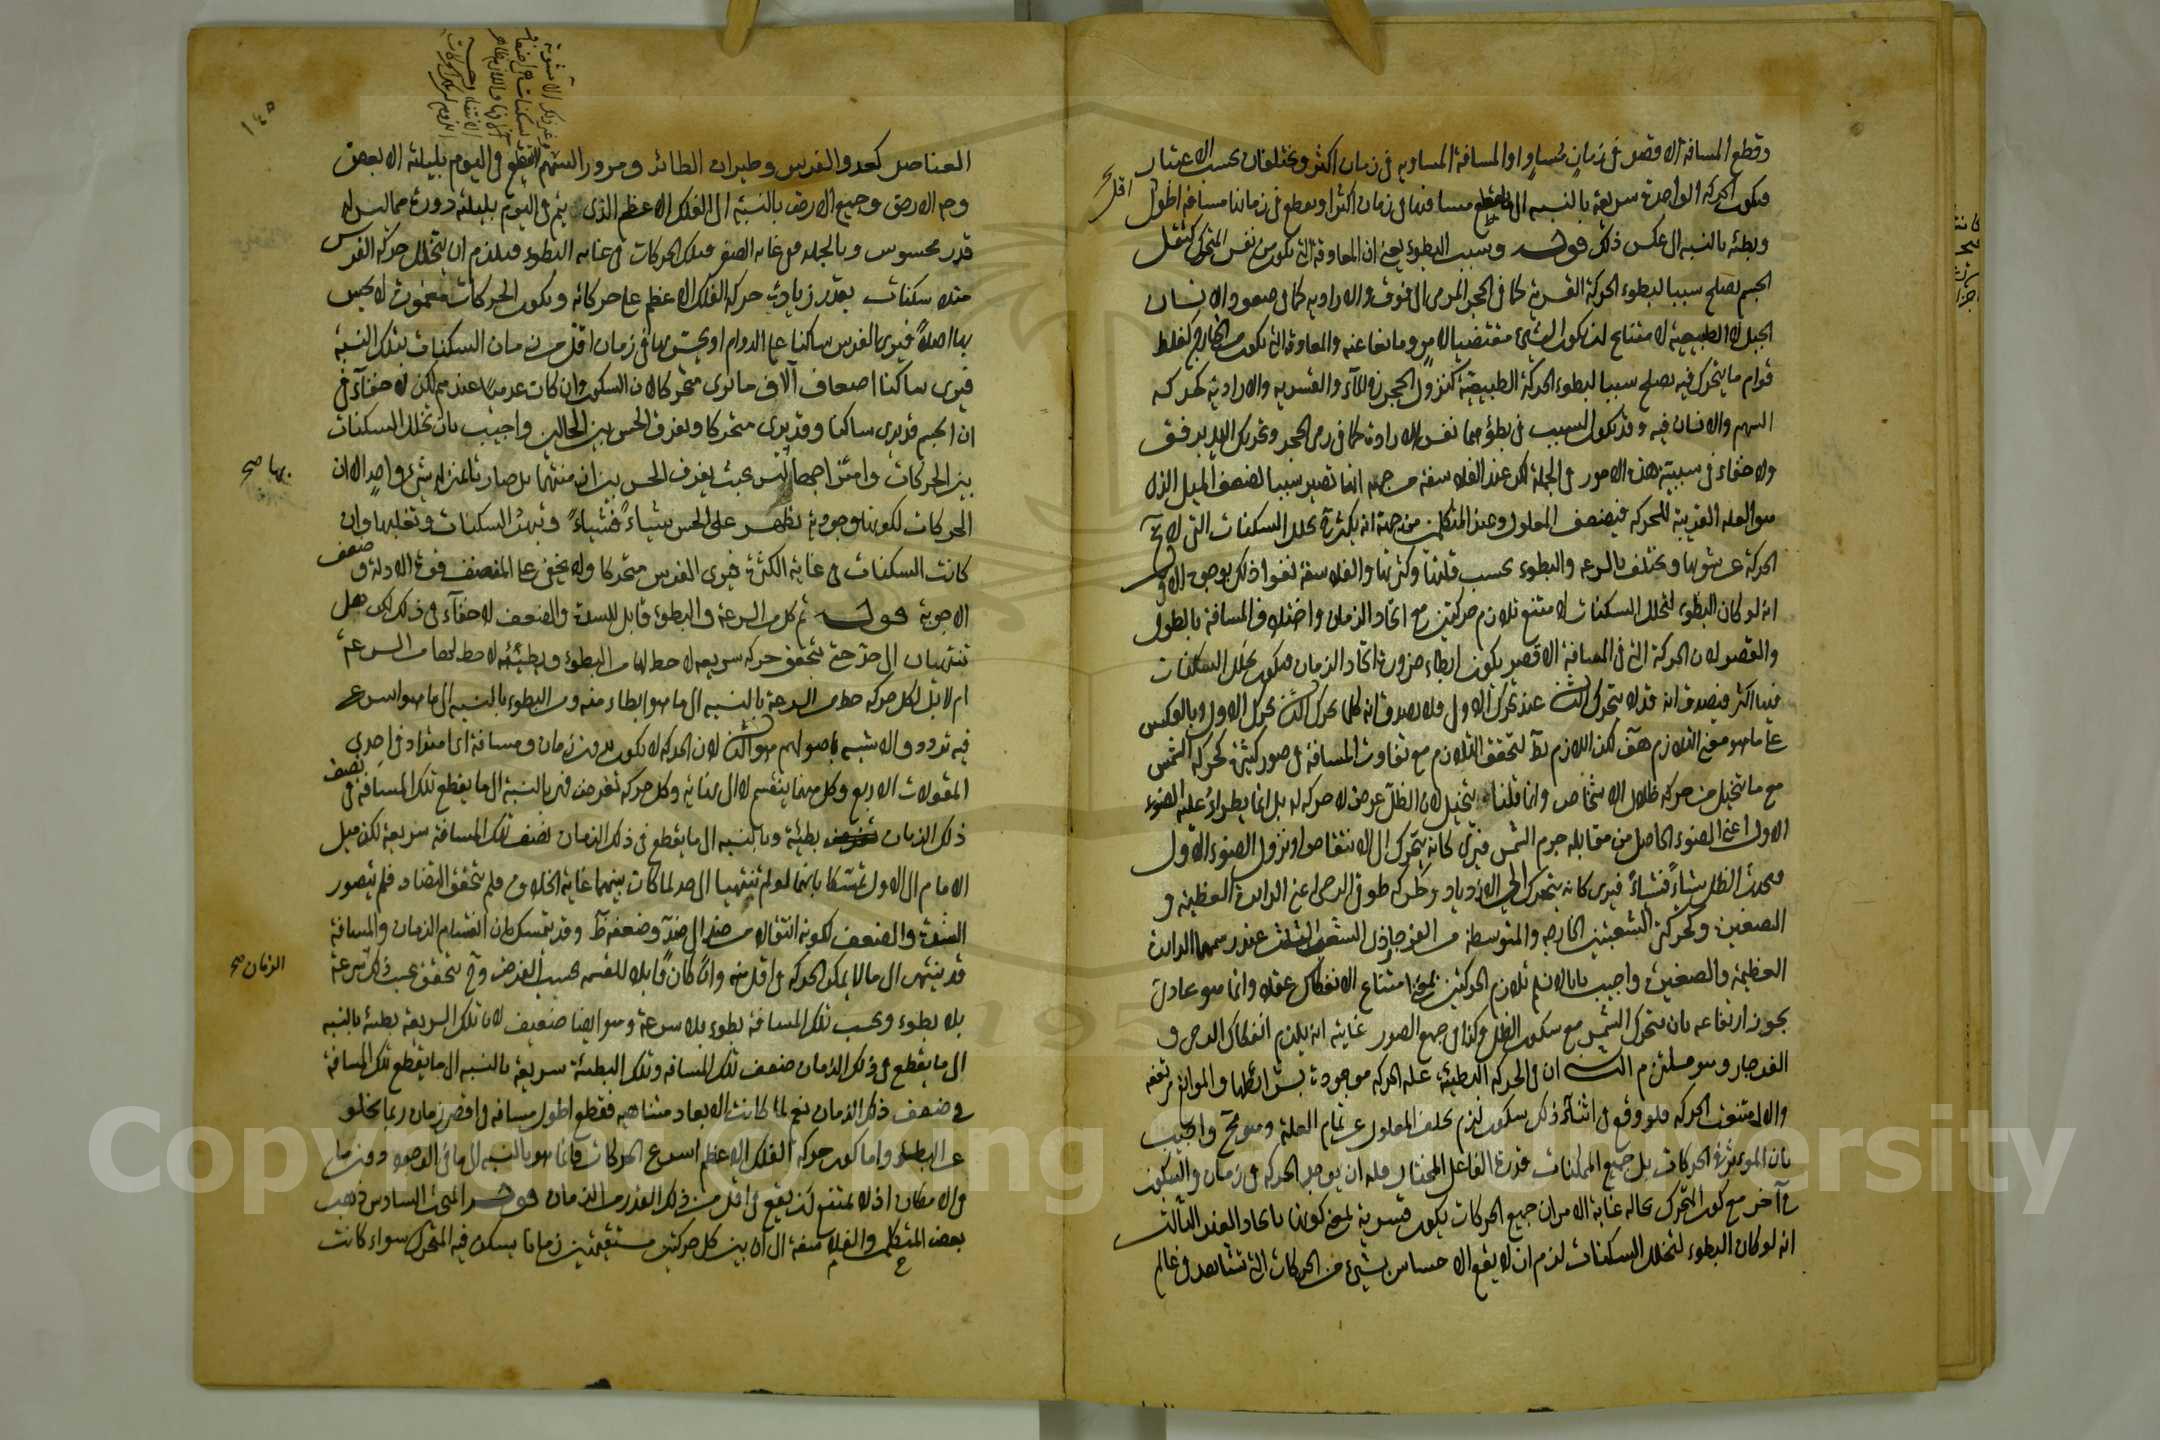 وقطع المسافة الاقصر في زمان مساو او المسافة المساوية في زمان اكثر ويختلفان بحسب الاعتبار
فيكون الحركة الواحدة سريعة بالنسبة الى ما يقطع مسافتها في زمان اكثر او يقطع في زمانها مسافة اطول
اقل صح
وبطيئة بالنسبة الى عكس ذلك قوله وسبب البطوء يعني ان المعاوقة التي تكون من نفس المتحرك كثقل
الجسم تصلح سببا لبطوء الحركة القسرية كما في الحجر المرمى الى فوق والارادية كما في صعود الانسان
الجبل لا الطبيعية لامتناع ان يكون الشئ مقتضيا لامر ومانعا عنه والمعاوقة التي تكون من الخارج كغلظ
قوام ما يتحرك فيه تصلح سببا لبطوء الحركة الطبيعية كنزول الحجر في الماء والقسرية والارادية كحركة
السهم والانسان فيه وقد يكون السبب في بطؤهما نفس الارادة كما في رمى الحجر وتحريك اليد برفق
ولا خفاء في سببية هذه الامور في الجملة لكن عند الفلاسفة من جهة انها تصير سببا لضعف الميل الذي
هو العلة القريبة للحركة فيضعف المعلول وعند المتكلمين من جهة انه يكثر تخلل السكنات التي لا تخ
الحركة عن شوبها ويختلف بالسرعة والبطوء بحسب قلتها وكثرتها والفلاسفة نفوا ذلك بوجوه الاول
انه لو كان البطوء لتخلل السكنات لامتنع تلازم حركتين مع اتحاد الزمان واختلاف المسافة بالطول
والقصر لان الحركة التي في المسافة الاقصر يكون ابطاء ضرورة اتحاد الزمان فيكون تخلل السكنات
فيها اكثر فيصدق انه قد لا يتحرك الثاني عند تحرك الاول فلا يصدق انه كلما تحرك الثاني تحرك الاول وبالعكس
على ما هو معنى التلازم هف لكن اللازم بط لتحقق التلازم مع تفاوت المسافة في صور كثيرة كحركة الشمس
مع ما يتخيل من حركة ظلال الاشخاص وانما قلنا يتخيل لان الظل عرض لا حركة له بل انما يطرأ عليه الضوء
الاول اعني الضوء الحاصل من مقابلة جرم الشمس فيرى كانه يتحرك الى الانتقاص او يزول الضوء الاول
فيحدث الظل شياء فشياء فيرى كانه يتحرك الى الازدياد وكحركة طوق الرحى اعني الدائرة العظيمة و
الصغيرة وكحركة الشعبتين الخارجة والمتوسطة من الفرجار ذي الشعب الثلث عند رسمهما الدائرة
العظيمة والصغيرة واجيب بانا لا نسلم تلازم الحركتين بمعنى امتناع الانفكاك عقلا وانما هو عادي
يجوز ارتفاعه بان يتحرك الشمس مع سكون الظل وكذا في جميع الصور غايته انه يلزم انفكاك الرحى و
الفرجار وهو ملتزم الثاني ان في الحركة البطيئة علة الحركة موجودة بشرائطها والموانع مرتفعة
والا لامتنعت الحركة فلو وقع في اثناء ذلك سكون لزم تخلف المعلول عن تمام العلة وهو مح واجيب
بان المؤثر في الحركات بل جميع الممكنات قدرة الفاعل المختار فله ان يوجد الحركة في زمان والسكون
في آخر مع كون المتحرك بحاله غاية الامر ان جميع الحركات يكون قسرية بمعنى كونها بايجاد الغير الثالث
انه لو كان البطوء لتخلل السكنات لزم ان لا يقع الاحساس بشئ من الحركات التي تشاهد في عالم
١٤٥
العناصر كعدو الفرس وطيران الطائر ومرور السهم لانقطع في اليوم بليلته الا بعض
وجه الارض وجميع الارض بالنسبة الى الفلك الاعظم الذي يتم في اليوم بليلته دورة مما ليس له
قدر محسوس وبالجملة في غاية الصغر فتلك الحركات في غاية البطوء فيلزم ان يتخلل حركة الفرس
مثلا سكنات بقدر زيادة حركة الفلك الاعظم على حركاته ويكون الحركات مغمورة لا يحس
بها اصلا فيرى الفرس ساكنا على الدوام او يحس بها في زمان اقل من زمان السكنات بتلك النسبة
فيرى ساكنا اضعاف آلاف ما يرى متحركا لان السكون وان كان عدميا عندهم لكن لا خفاء في
ان الجسم قد يرى ساكنا وقد يرى متحركا ويفرق الحس بين الحالين واجيب بان تخلل السكنات
بين الحركات وامتزاجهما ليس بحيث يفرق الحس بين ازمنتهما بل صارتا بمنزلة شئ واحد الا ان
بها صح
الحركات لكونها وجودية تظهر على الحس شياء فشياء وتبهر السكنات وتغلبها وان
كانت السكنات في غاية الكثرة فيرى الفرس متحركا ولا يخفى على المنصف قوة الادلة وضعف
الاجوبة قوله ثم كل من السرعة والبطوء قابل للشدة والضعف لا خفاء في ذلك لكن هل
تنتهيان الى حد حتى يتحقق حركة سريعة لا حظ لها من البطوء وبطيئة لا حظ لها من السرعة
ام لا بل لكل حركة حظ من السرعة بالنسبة الى ما هو ابطاء منه ومن البطوء بالنسبة الى ما هو اسرع
فيه تردد والاشبه باصولهم هو الثاني لان الحركة لا تكون بدون زمان ومسافة اى امتداد في احدى
المقولات الاربع وكل منهما ينقسم لا الى نهاية وكل حركة تفرض فهي بالنسبة الى ما يقطع تلك المسافة في نصف
ذلك الزمان بطيئة وبالنسبة الى ما يقطع في ذلك الزمان نصف تلك المسافة سريعة لكن ميل
الامام الى الاول تمسكا بانهما لو لم تنتهيا الى حد لما كان بينهما غاية الخلاف فلم يتحقق التضاد فلم يتصور
الشدة والضعف لكونه انتقالا من ضد الى ضد وضعفه ظ وقد تمسك بان انقسام الزمان والمسافة
قد ينتهى الى ما لا يمكن الحركة في اقل منه وان كان قابلا للقسمة بحسب الفرض وح يتحقق بحسب ذلك سرعة
الزمان صح
بلا بطوء وبحسب تلك المسافة بطوء بلا سرعة وهو ايضا ضعيف لان تلك السريعة بطيئة بالنسبة
الى ما يقطع في ذلك الزمان ضعف تلك المسافة وتلك البطيئة سريعة بالنسبة الى ما يقطع تلك المسافة
في ضعف ذلك الزمان نعم لما كانت الابعاد متناهية فقطع اطول مسافة في اقصر زمان ربما يخلو
عن البطوء واما كون حركة الفلك الاعظم اسرع الحركات فانما هو بالنسبة الى ما في الوجود دون ما
في الامكان اذ لا يمتنع ان يقع في اقل من ذلك القدر من الزمان قوله المبحث السادس ذهب
بعض المتكلمين والفلاسفة الى ان بين كل حركتين مستقيمتين زمانا يسكن فيه المتحرك سواء كانت
Copyright © King University